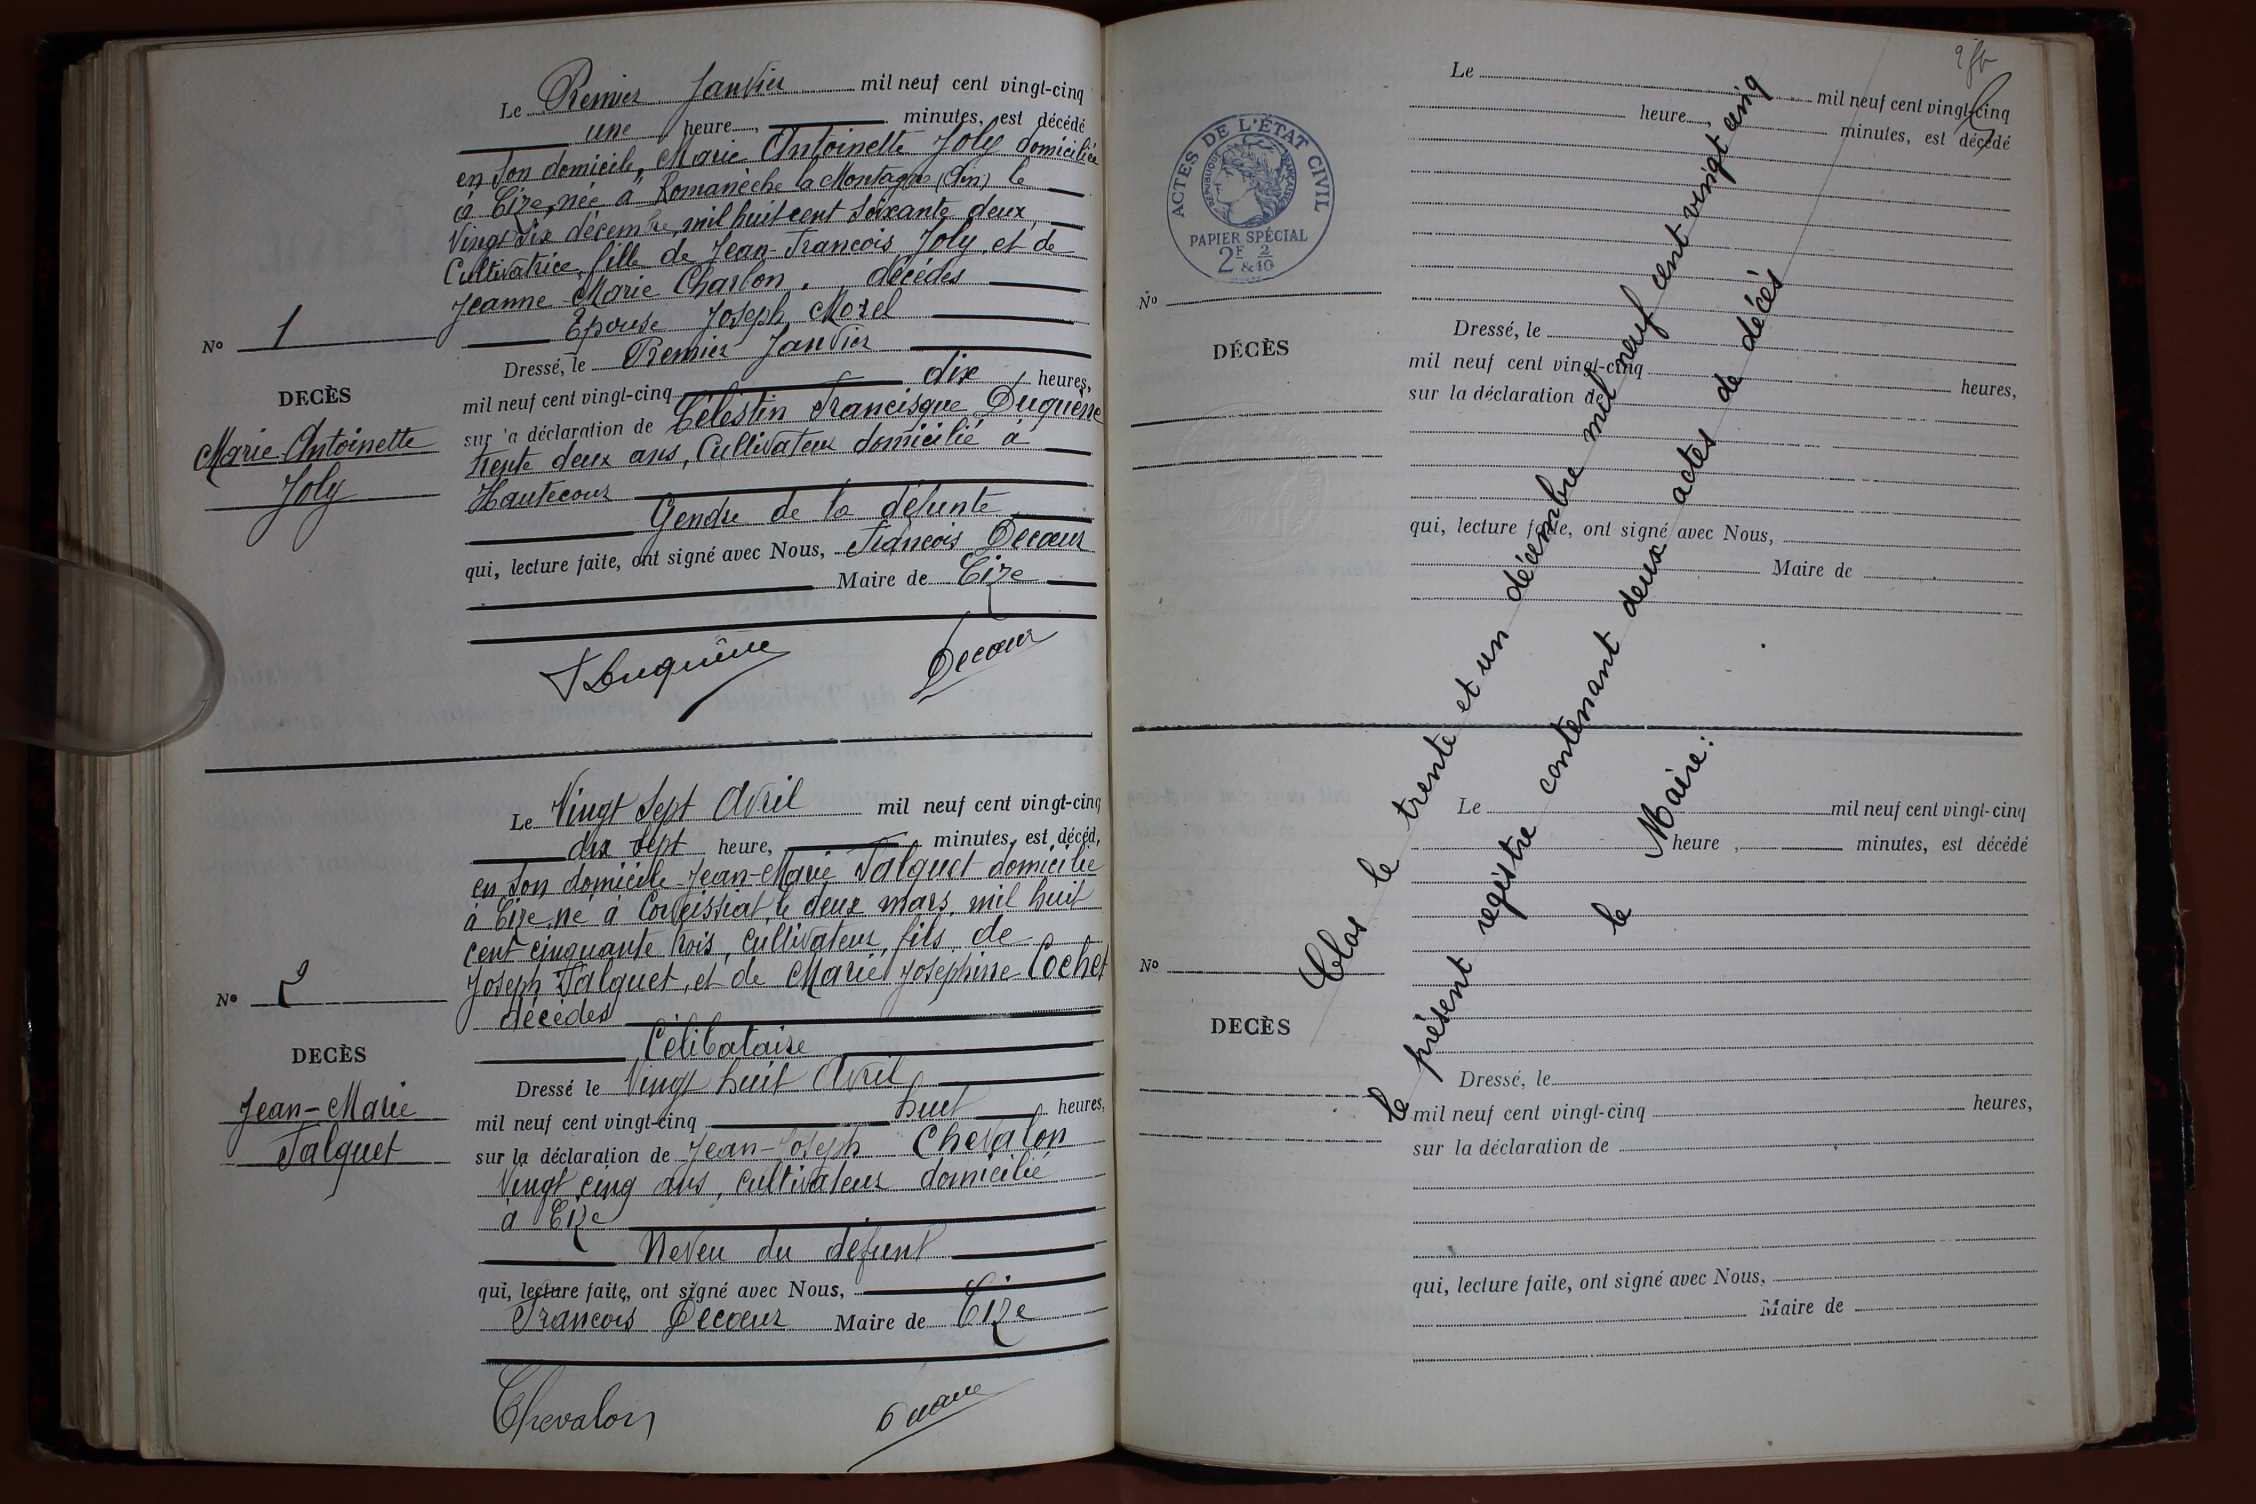 Le Premier Janvier mil neuf cent vingt-cinq
une heure, minutes, est décédé
en son domicile, Marie Antoinette Joly domiciliée
à Cize, née à Romanèche la Montagne (Ain) le
Vingt six décembre, mil huit cent soixante deux,
Cultivatrice, fille de Jean-François Joly, et de
Jeanne Marie Charbon, décédés
Epouse Joseph Morel
Dressé, le Premier Janvier
mil neuf cent vingt-cinq dix heures,
sur la déclaration de Célestin Francisque Duquène
trente deux ans, Cultivateur domicilié à
Hautecour
Gendre de la défunte
qui, lecture faite, ont signé avec Nous, François Decoeur
Maire de Cize
No 1
DECÈS
Marie Antoinette
Joly
F Duquène Decoeur
Le Vingt sept Avril mil neuf cent vingt-cinq
dix sept heure, minutes, est décéd,
en son domicile Jean-Marie Falquet domicilié
à Cize, né à Corveissiat, le deux mars, mil huit
cent cinquante trois, cultivateur, fils de
Joseph Falquet, et de Marie Josephine Cochet
décédés
Célibataire
Dressé le Vingt huit Avril
mil neuf cent vingt-cinq huit heures,
sur la déclaration de Jean-Joseph Chevalon
Vingt cinq ans, cultivateur domicilié
à Cize
Neveu du défunt
qui, lecture faite, ont signé avec Nous,
François Decoeur Maire de Cize
No 2
DECÈS
Jean-Marie
Falquet
Chevalon
Le mil neuf cent vingt-cinq
heure , minutes, est décédé
ACTES DE L'ÉTAT CIVIL
RÉPUBLIQUE FRANÇAISE
PAPIER SPÉCIAL
2F & 2/10
No
DÉCÈS
Dressé, le
mil neuf cent vingt-cinq heures,
sur la déclaration de
qui, lecture faite, ont signé avec Nous,
Maire de
Clos le trente et un décembre mil neuf cent vingt cinq
le présent registre contenant deux actes de décès
le Maire:
Le mil neuf cent vingt-cinq
heure , minutes, est décédé
No
DECÈS
Dressé, le
mil neuf cent vingt-cinq heures,
sur la déclaration de
qui, lecture faite, ont signé avec Nous,
Maire de